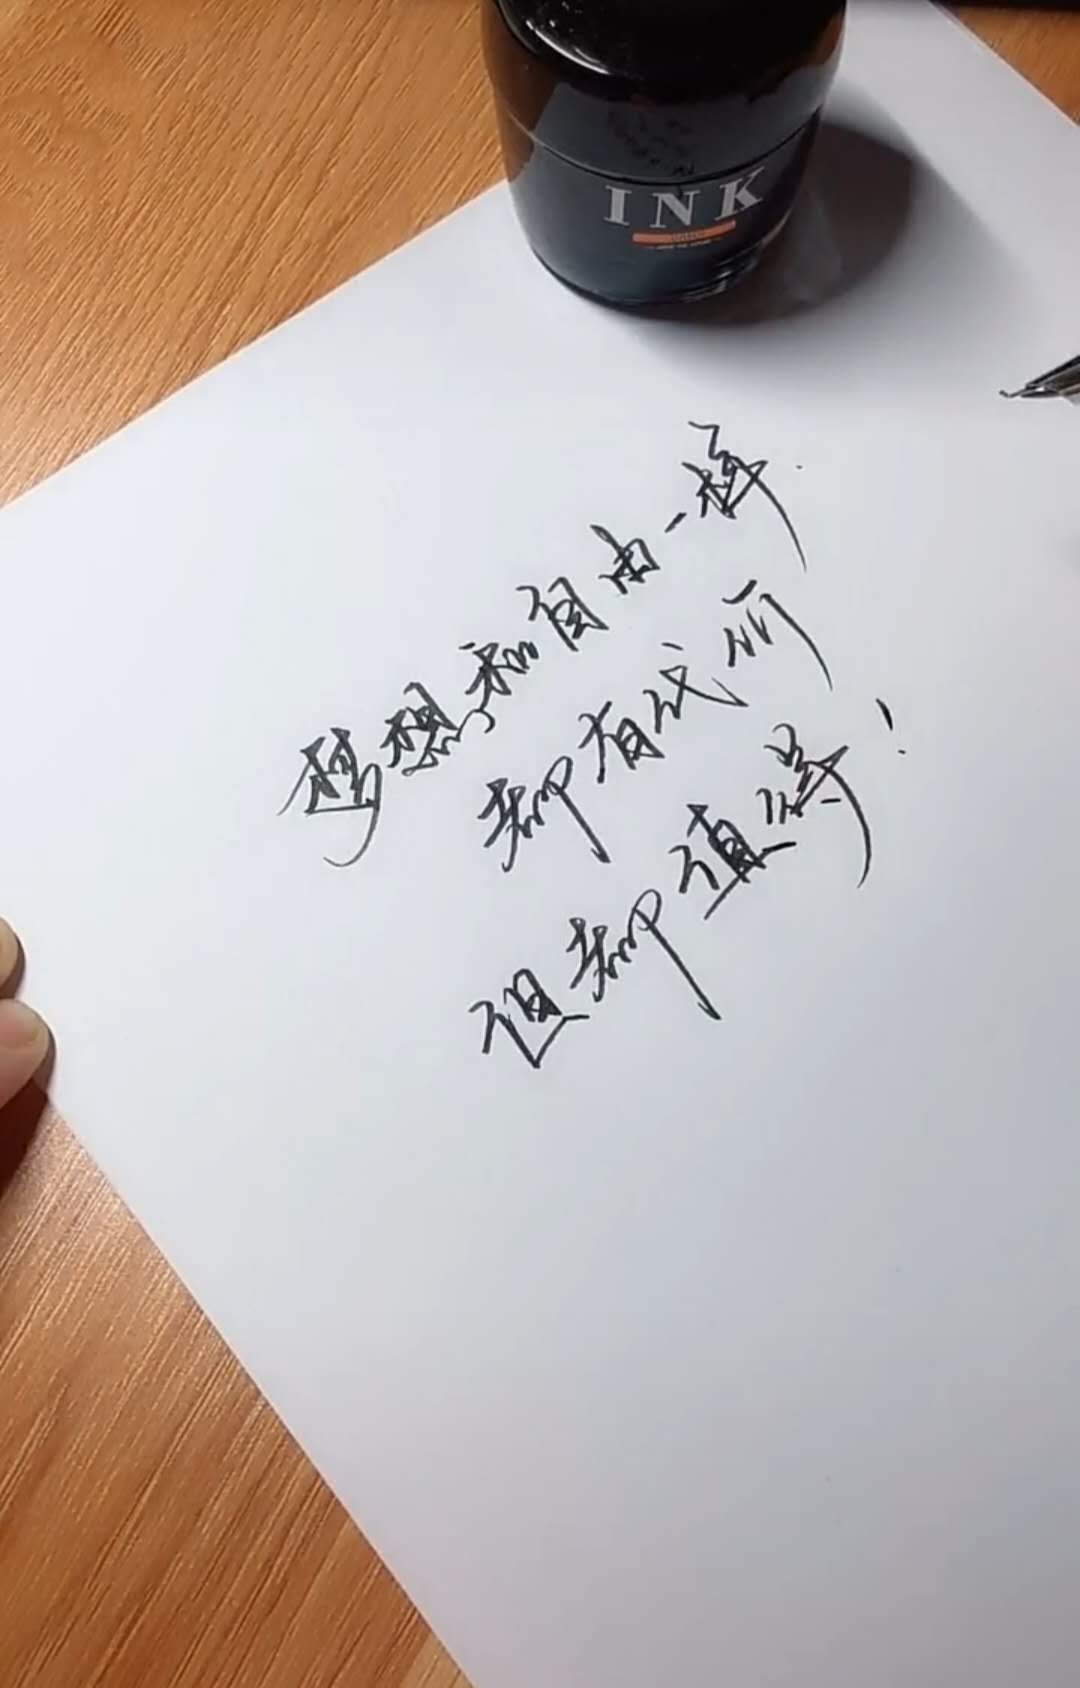 INK
梦想和自由一样
都有代价
但都值得!